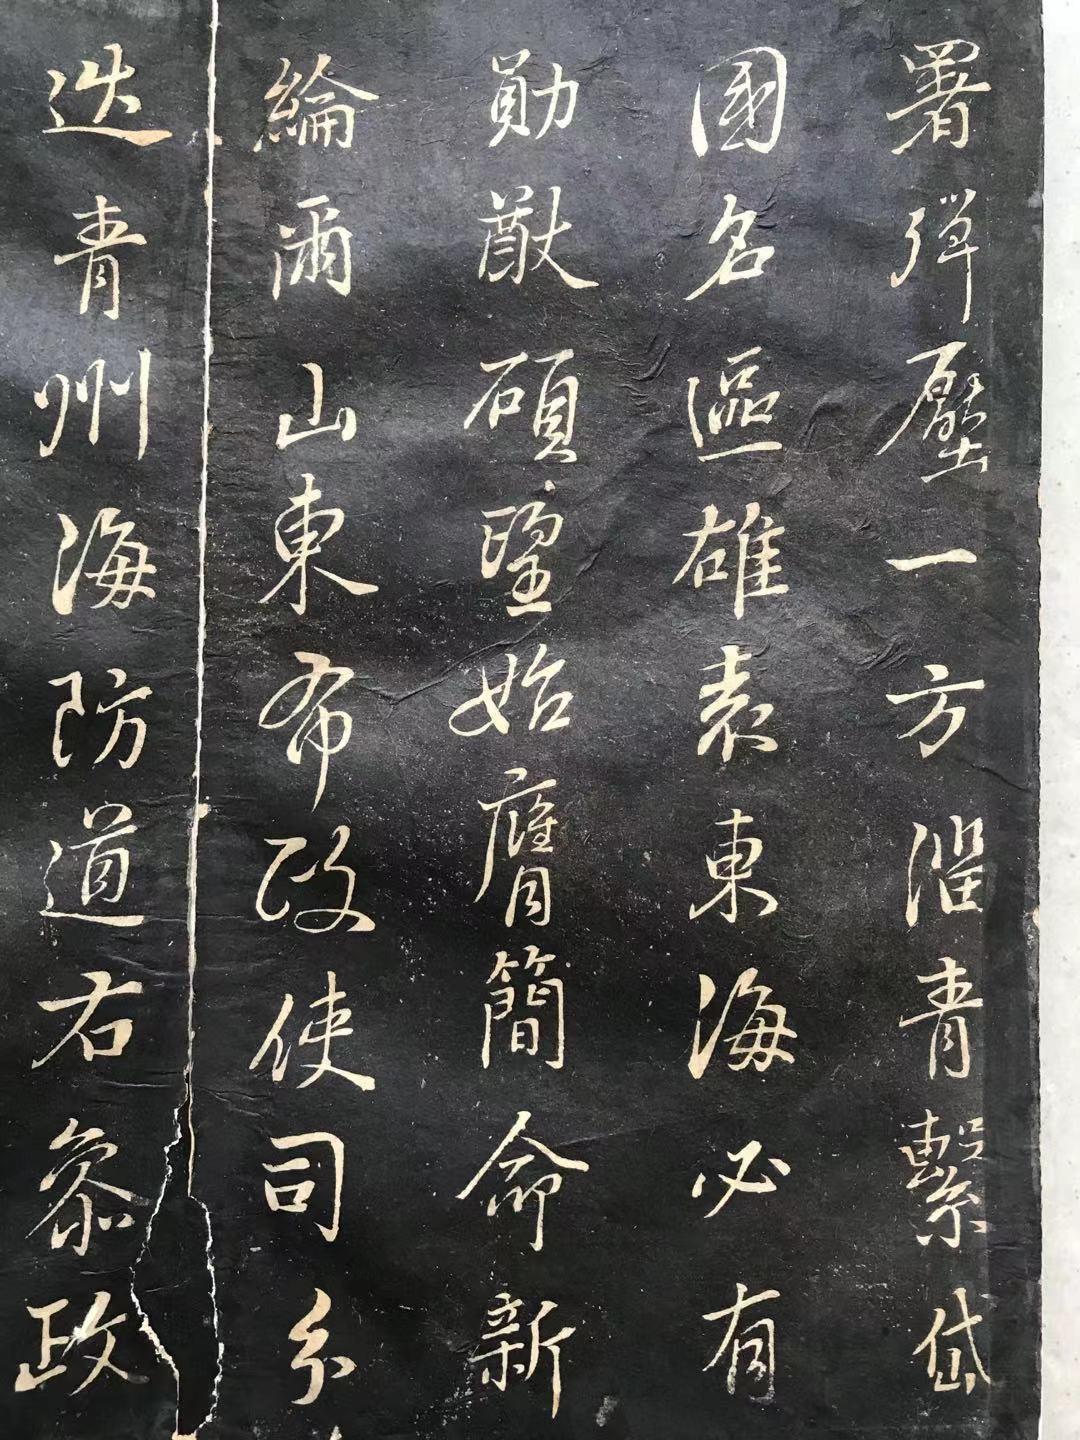 署彈壓一方淄青繫岱
國名區雄表東海必有
勛猷碩望始膺簡命新
綸爾山東布政使司分
巡青州海防道右參政